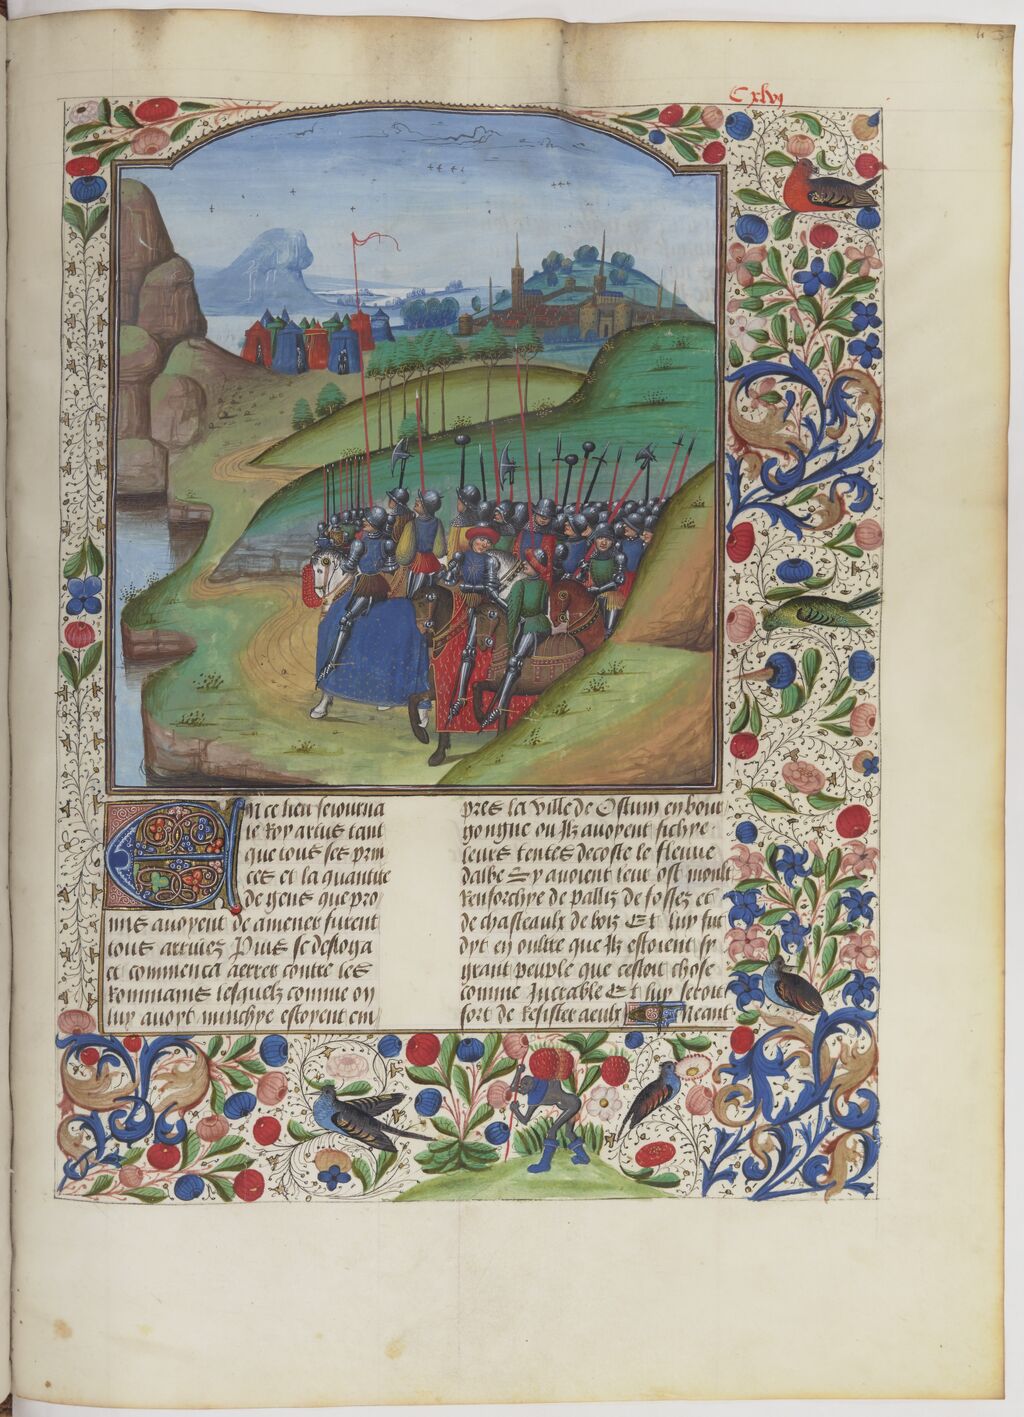 Cxlvj
En ce lieu seiourna
le Roy artus tant
que tous ses prin
ces et la quantite
de gens que pro
mis auoyent de amener furent
tous arriuez Puis se desloga
et commenca aerrer contre les
Rommains lesquelz comme on
luy auoyt nunchye estoyent em
pres la ville de Ostum en bour
gongne ou Ilz auoyent fichye
leurs tentes decoste le fleuue
dalbe Et y auoient leur ost moult
Renforchye de pallis de fossez et
de chasteaulx de bois Et luy fut
dyt en oultre que Ilz estoient sy
grant peuple que cestoit chose
comme Increable Et luy seroit
fort de Resister aeulx Neant